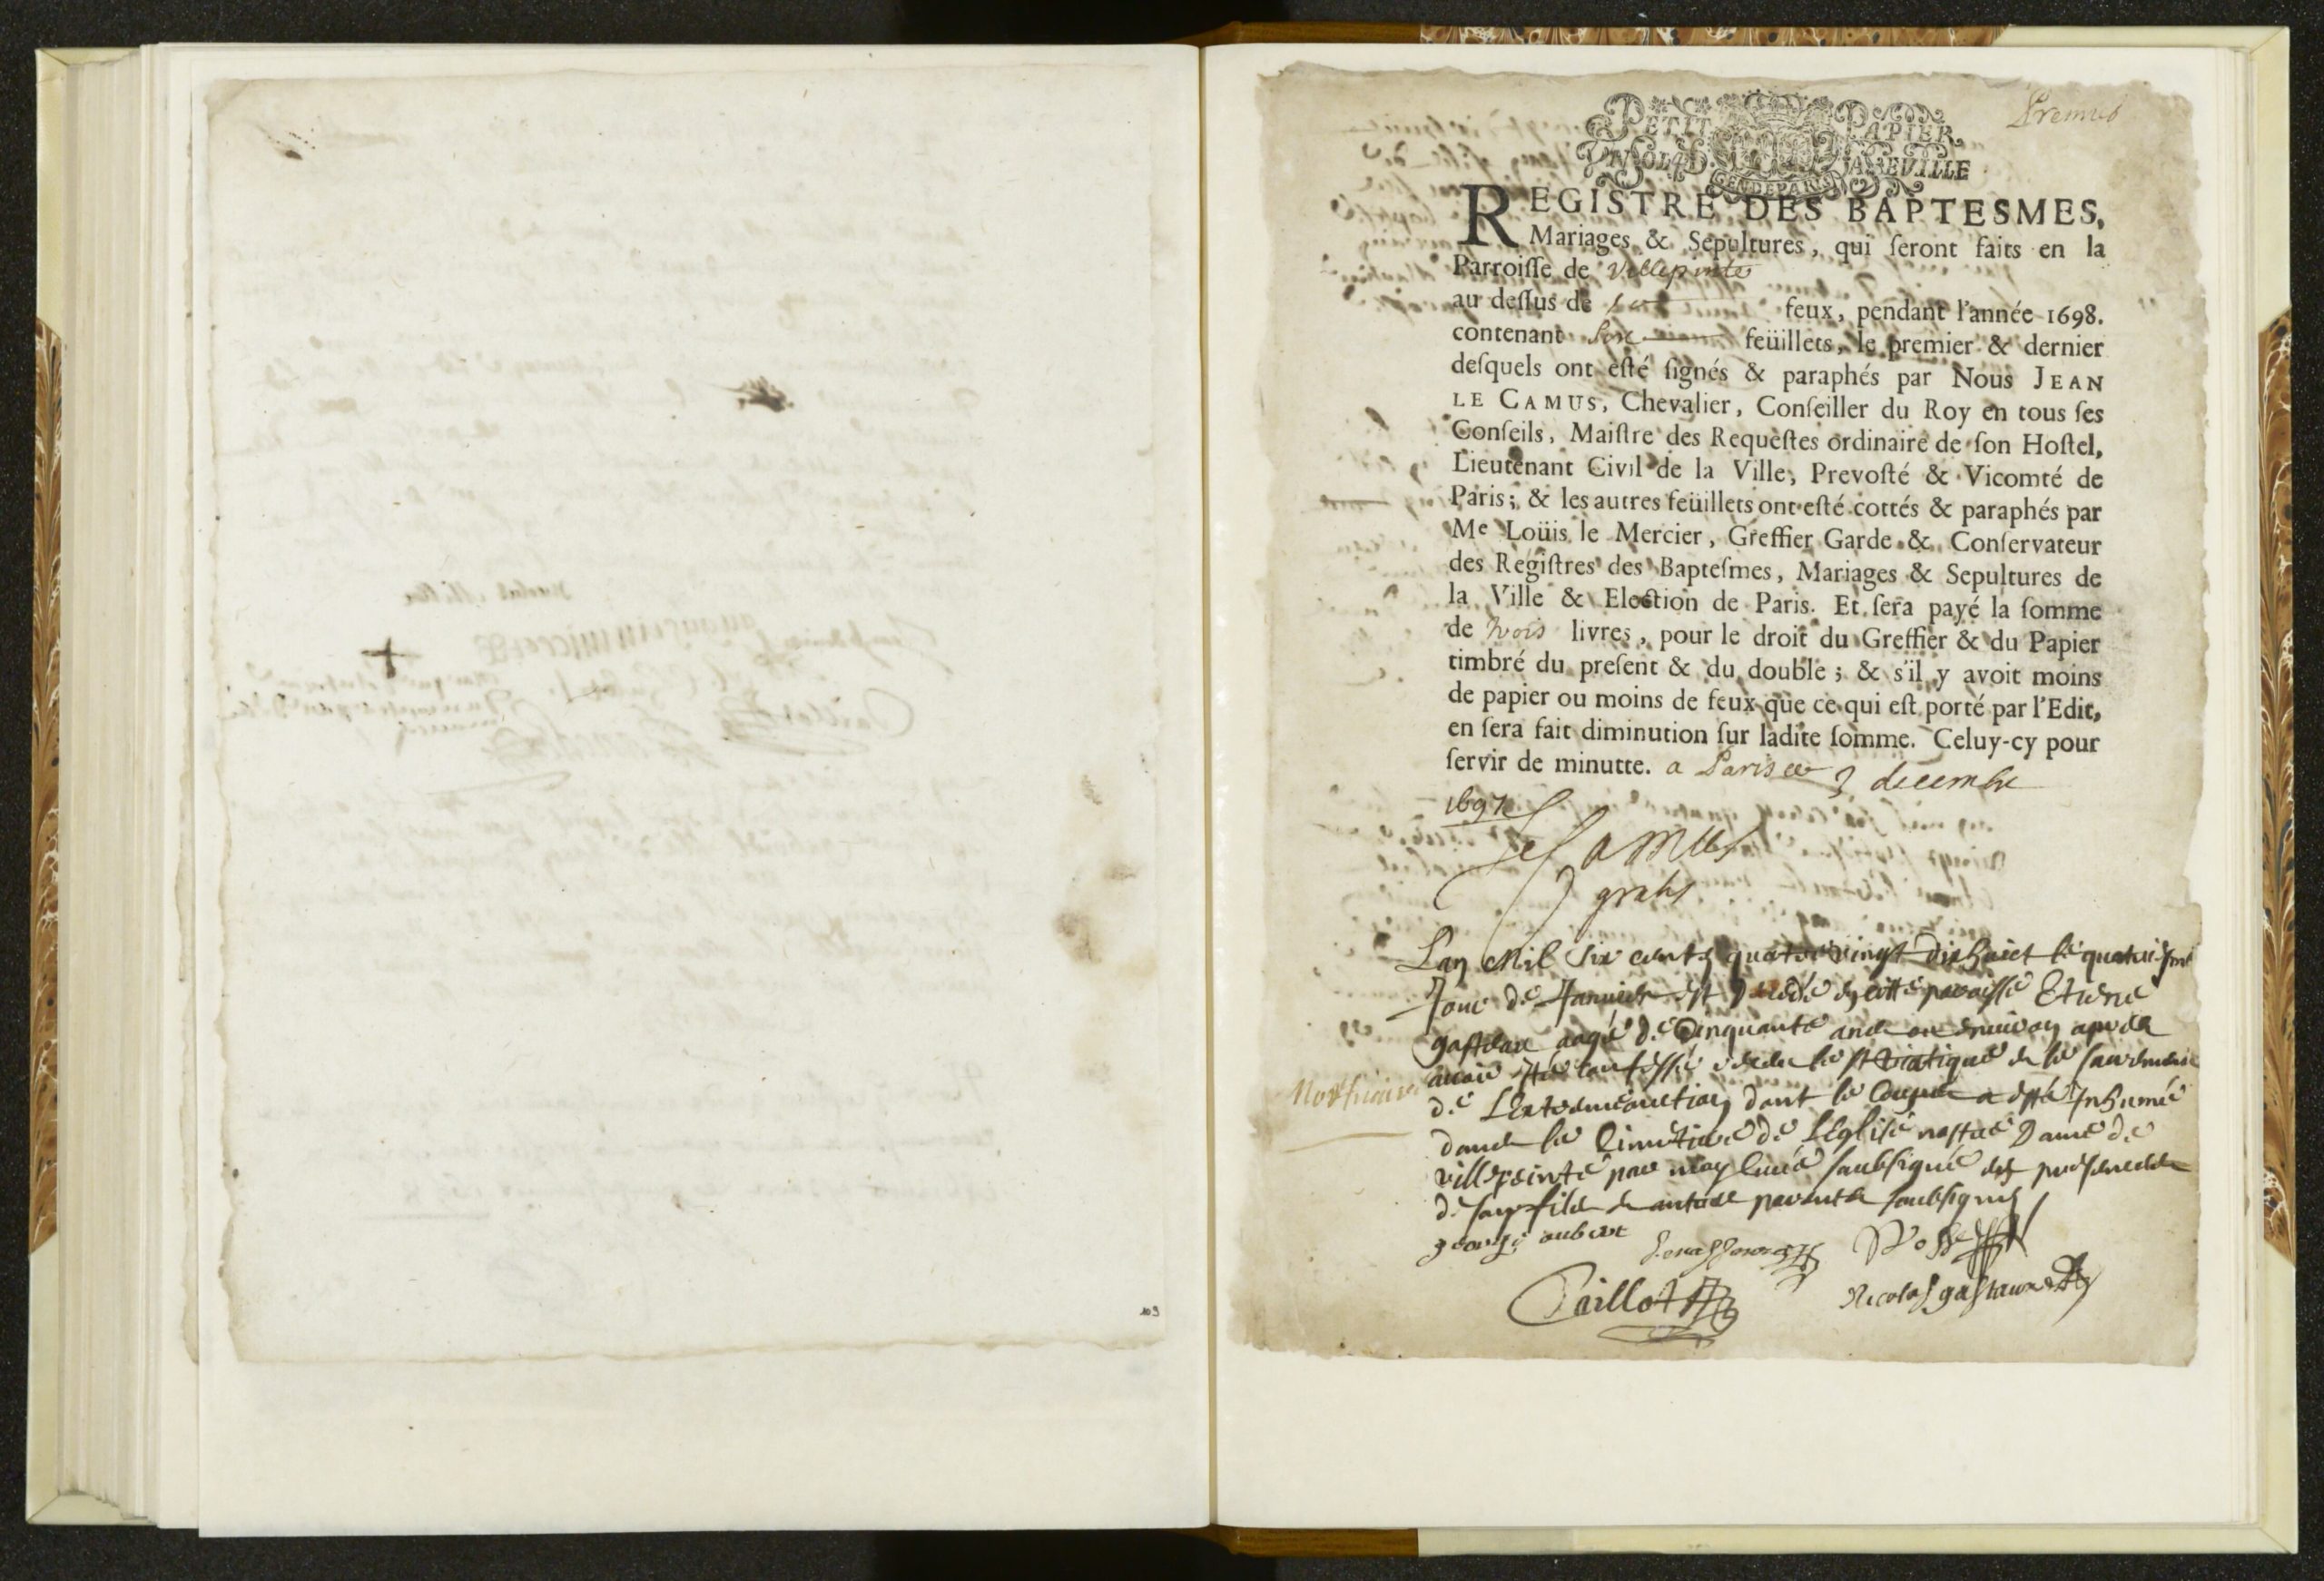 109
Premier
PETIT PAPIER
UN SOL 4 D. LA FEUILLE
GEN DE PARIS
REGISTRE DES BAPTESMES,
Mariages & Sepultures, qui ſeront faits en la
Parroiſſe de Villepinte
au deſſus de feux, pendant l'année 1698.
contenant feüillets, le premier & dernier
deſquels ont eſté ſignés & paraphés par Nous JEAN
LE CAMUS, Chevalier, Conſeiller du Roy en tous ſes
Conſeils, Maiſtre des Requeſtes ordinaire de ſon Hoſtel,
Lieutenant Civil de la Ville, Prevoſté & Vicomté de
Paris; & les autres feüillets ont eſté cottés & paraphés par
Me Loüis le Mercier, Greffier Garde & Conſervateur
des Regiſtres des Bapteſmes, Mariages & Sepultures de
la Ville & Election de Paris. Et ſera payé la ſomme
de trois livres, pour le droit du Greffier & du Papier
timbré du preſent & du double; & s'il y avoit moins
de papier ou moins de feux que ce qui eſt porté par l'Edit,
en ſera fait diminution ſur ladite ſomme. Celuy-cy pour
ſervir de minutte. a Paris ce 3 decembre
1697
Le Camus
gratis
Lan Mil six cents quatre vingt dix huict le quatriesme
Jour de Janvier est decedé en cette paroisse Etiene
gasteau aagé de Cinquante ans ou environ apres
avoir esté confessé receu le st viatique et le sacrement
de LExtremeonction dont le Corps a esté Inhumé
dans le Cimetiere de LEglise nostre Dame de
villepeinte par moy Curé soubsigné en presence
de son fils et autres parents soubsignes
george aubert
Caillot
Nicolas gasteau